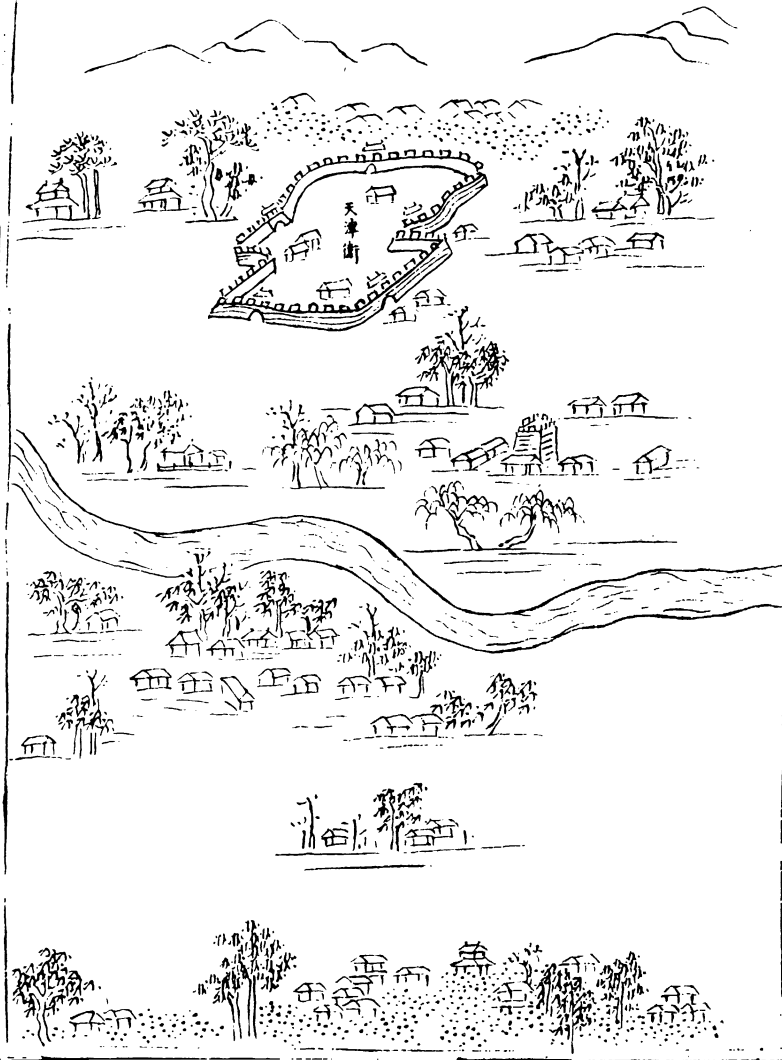 天津衛